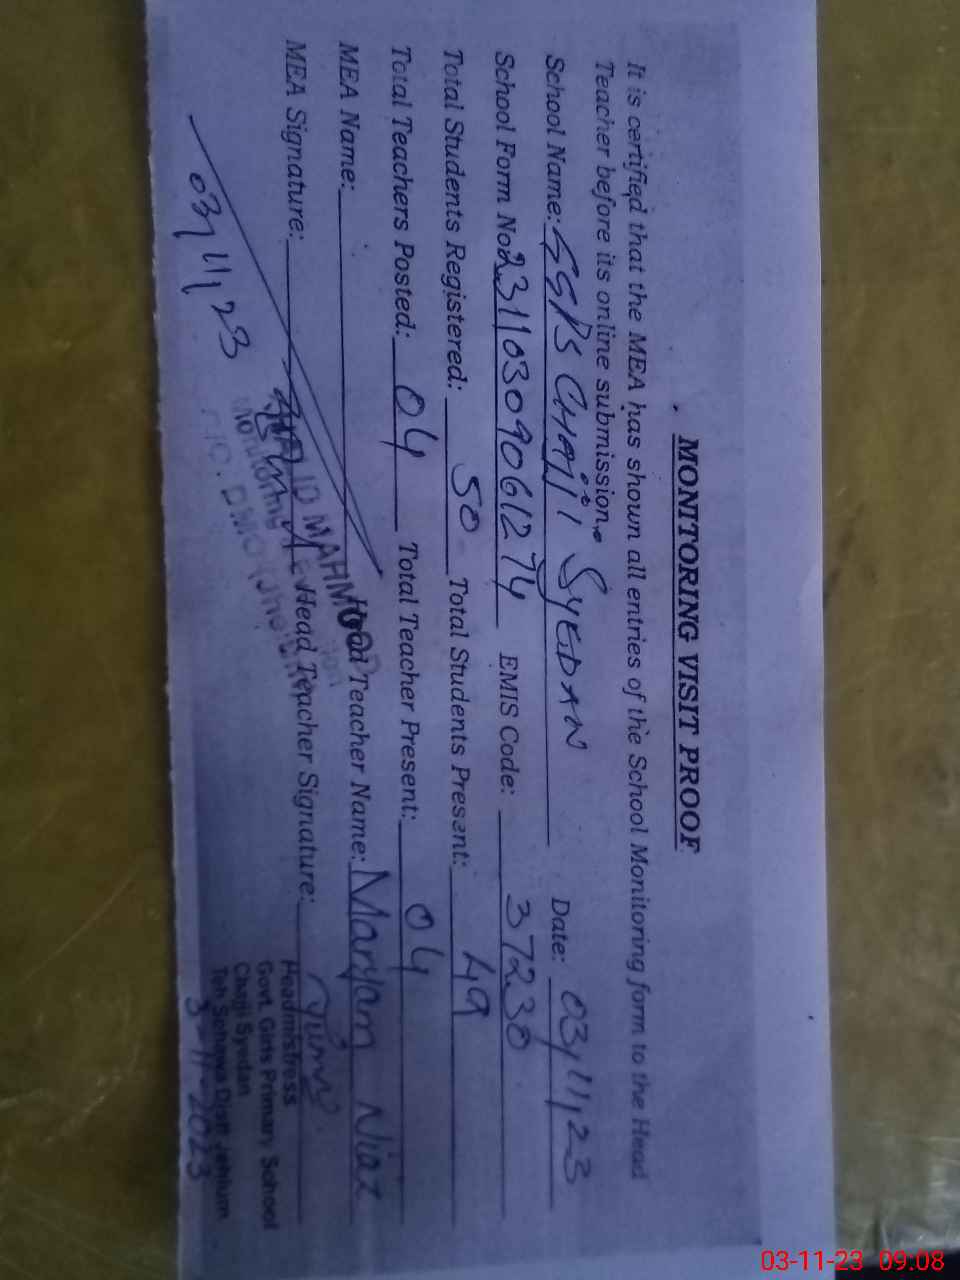 MONITORING VISIT PROOF
It is certified that the MEA has shown all entries of the School Monitoring form to the Head
Teacher before its online submission.
School Name: GGPS CHAJJI SYEDAN Date: 03/11/23
School Form No: 23110309061274 EMIS Code: 37230
Total Students Registered: 50 Total Students Present: 49
Total Teachers Posted: 04 Total Teacher Present: 04
MEA Name: Head Teacher Name: Maryam Niaz
MEA Signature: Head Teacher Signature:
KHALID MAHMOOD
Monitoring
03/11/23
Headmistress
Govt. Girls Primary School
Chajji Syedan
Teh Sohawa Distt Jehlum
3-11-2023
03-11-23 09:08